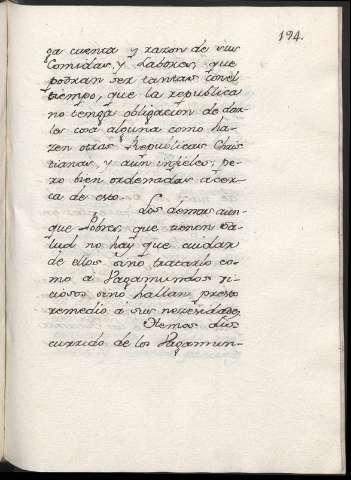 194.
ga cuenta y razon de sus
Comidas, y Labores, que
podran ser tantas con el
tiempo, que la republica
no tenga obligacion de dar-
les cosa alguna como ha-
zen otras Republicas Chris
tianas, y aun infieles, pe-
ro bien ordenadas acer-
ca de esto.
Los demas aun-
que Pobres, que tienen sa-
lud no hay que cuidar
de ellos sino tratarlo co-
mo á Vagamundos vi-
ciosos sino hallan presto
remedio a sus nezesidades.
Hemos dis
currido de los Vagamun-